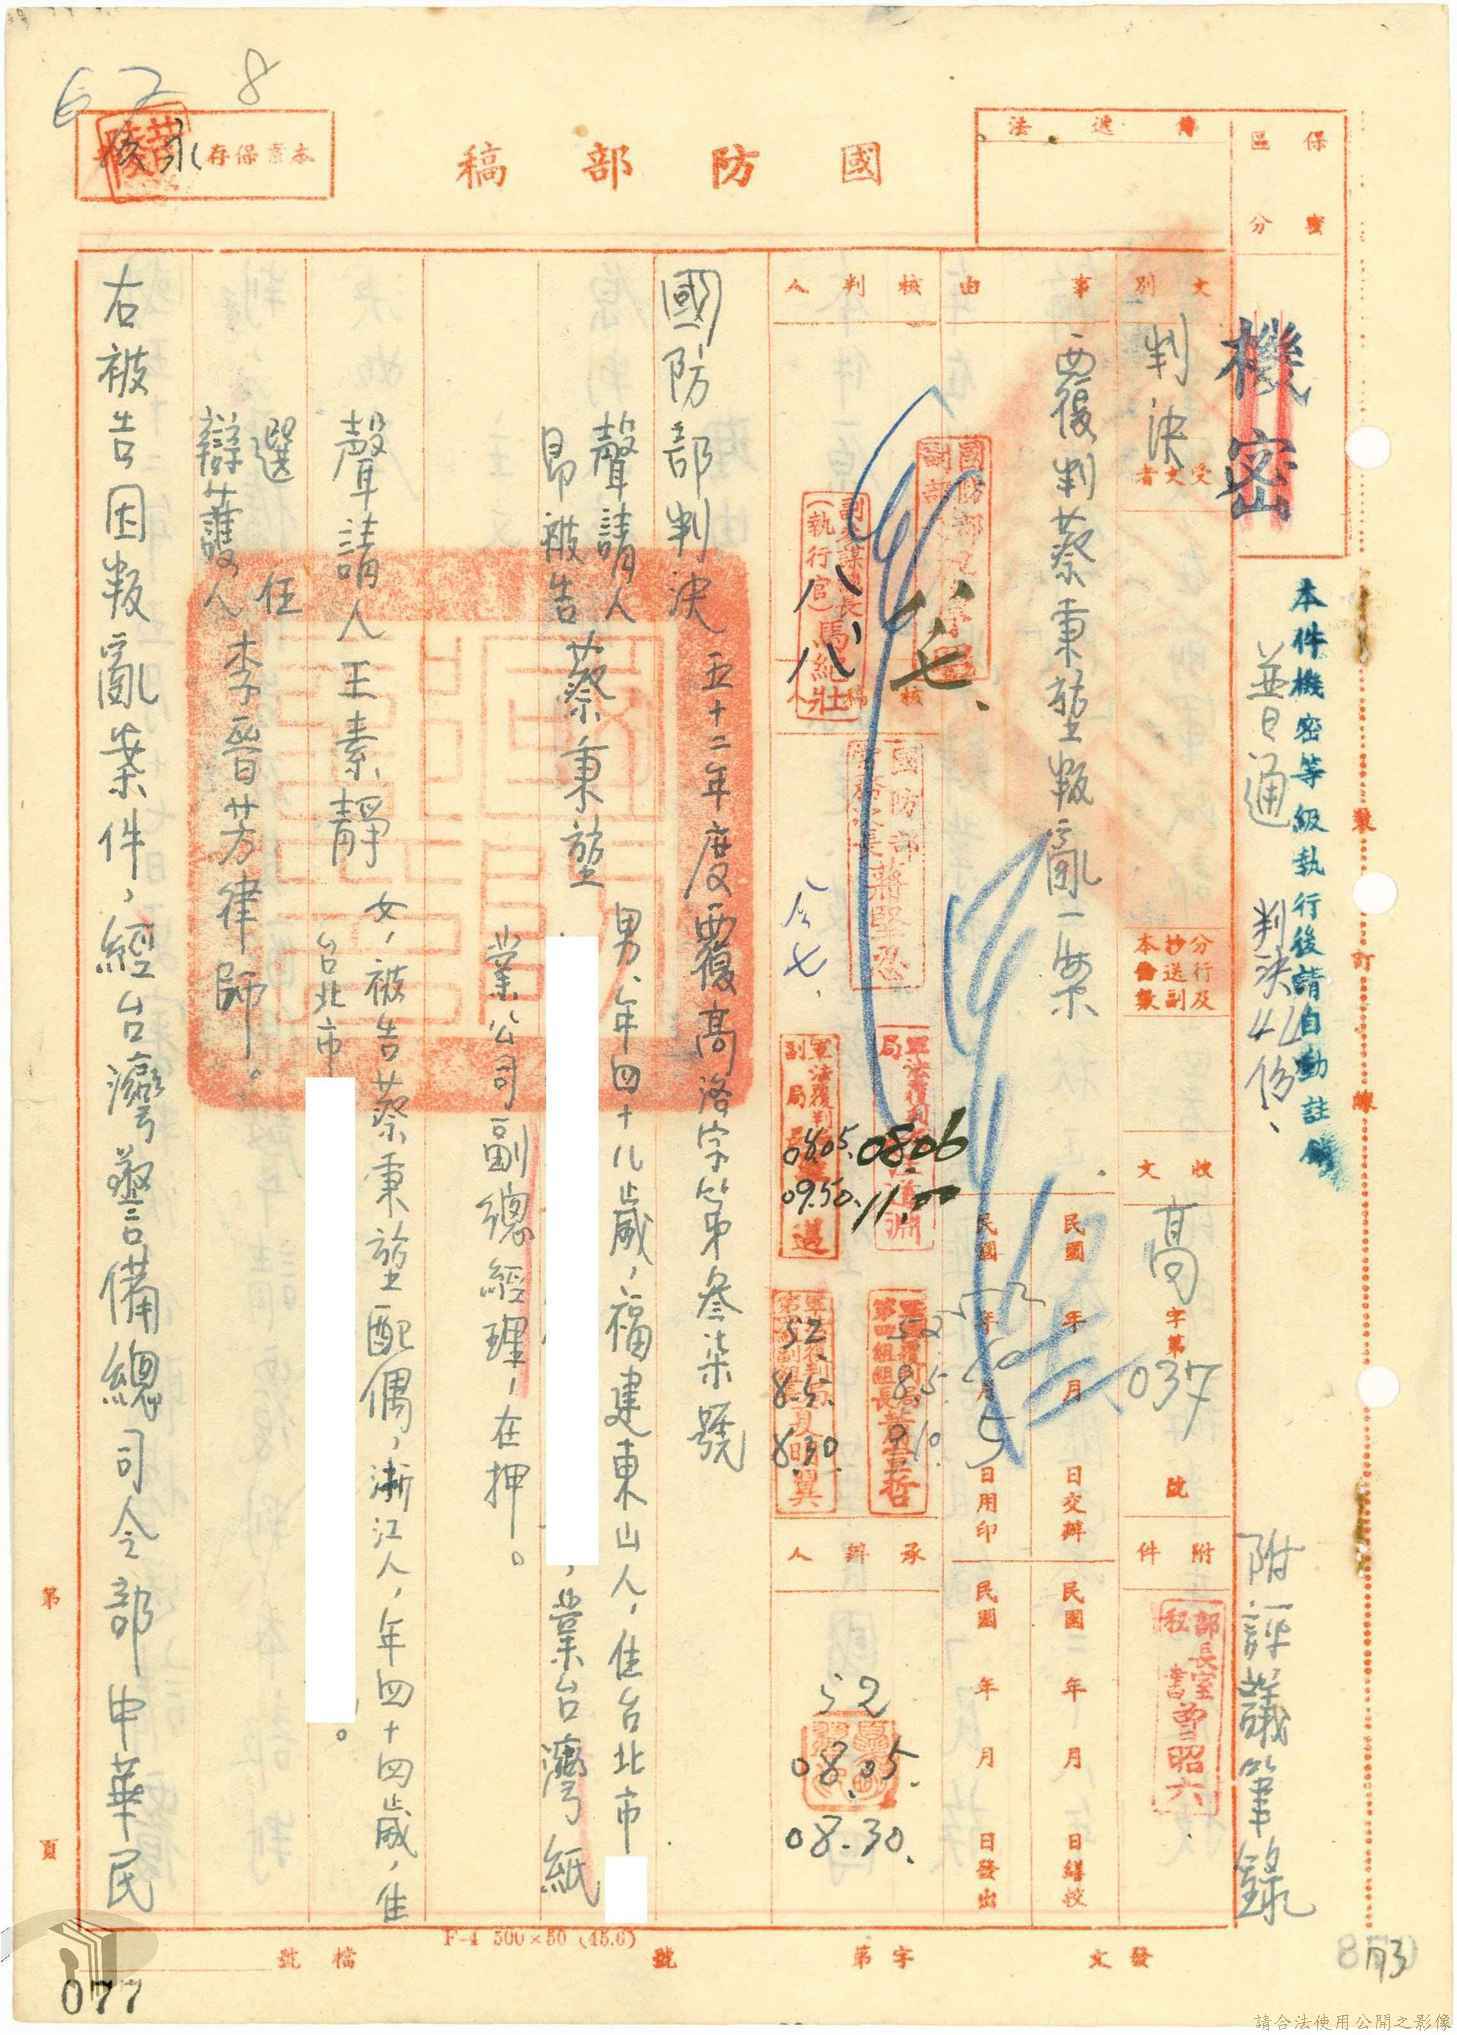 國防部稿
本案保存
永
627
8
傳遞法
保密區分
機密
本件機密等級執行後請自動註銷
普通
判決42份、
附評議筆錄
文別
判決
受文者
分行及抄送副本份數
收文
高字第037號
附件
部長室
秘書曾昭六
事由
覆判蔡秉堃叛亂一案
民國 年 月 日交辦
民國 年 月 日繕校
民國52年 月5日用印
民國 年 月 日發出
核判人
核稿人
承辦人
副參謀總長
(執行官)馬紀壯
八、七、
八、八
國防部
蔣堅忍
八、七、
0806
11.00
0805
09.50
52
8.5
9.10
52.
8.5.
8.30
52
08.05.
08.30.
國防部判決 五十二年度覆高洛字第叁柒號
聲請人
即被告 蔡秉堃 男、年四十八歲,福建東山人,住台北市
,業台灣紙
業公司副總經理,在押。
聲請人王素靜 女,被告蔡秉堃配偶,浙江人,年四十四歲,住
台北市 。
選任
辯護人 李晉芳律師。
右被告因叛亂案件,經台灣警備總司令部中華民
裝
訂
線
第
頁
發文
字第
號
檔號
F-4 500×50 (45.6)
077
請合法使用公開之影像